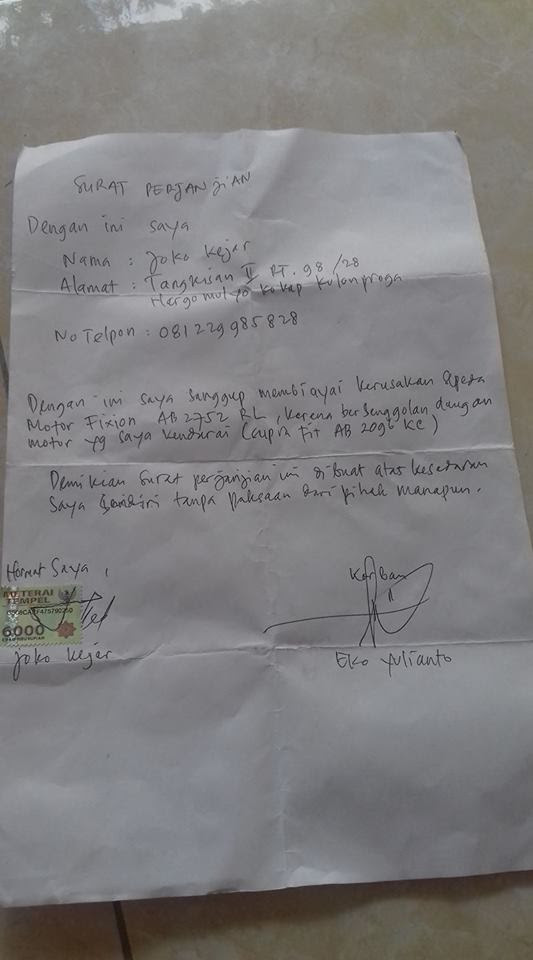 SURAT PERJANJIAN
Dengan ini saya
Nama : Joko Kejar
Alamat : Tangkisan II RT. 98 /28
Hargomulyo Kokap Kulonproga
No Telpon : 081229985828
Dengan ini saya sanggup membiayai kerusakan Speda
Motor Fixion AB 2752 RL, karena bersenggolan dangan
motor yg saya kendarai (Supra Fit AB 2096 KC)
Demikian surat perjanjian ini dibuat atas kesadaran
Saya Sendiri tanpa paksaan dari pihak manapun.
Hormat Saya,
Korban
METERAI
TEMPEL
6000
ENAM RIBU RUPIAH
Joko Kejar
Eko Yulianto